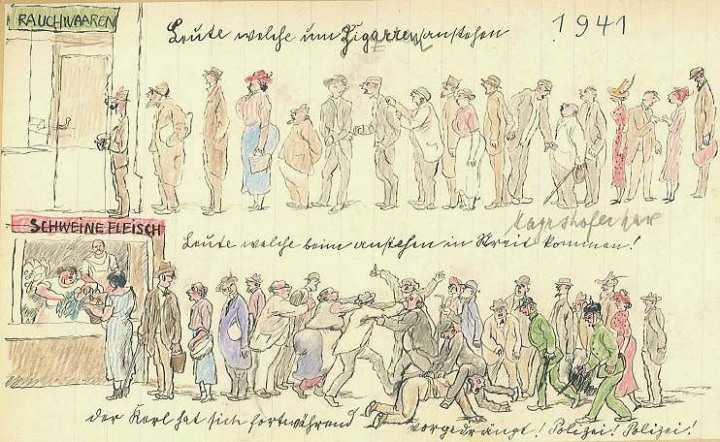 RAUCHWAAREN
Leute welche um Zigarren anstehen
1941
SCHWEINEFLEISCH
Leute welche beim anstehen in Streit kommen!
der Kerl hat sich fortwährend vorgedrängt! Polizei! Polizei!